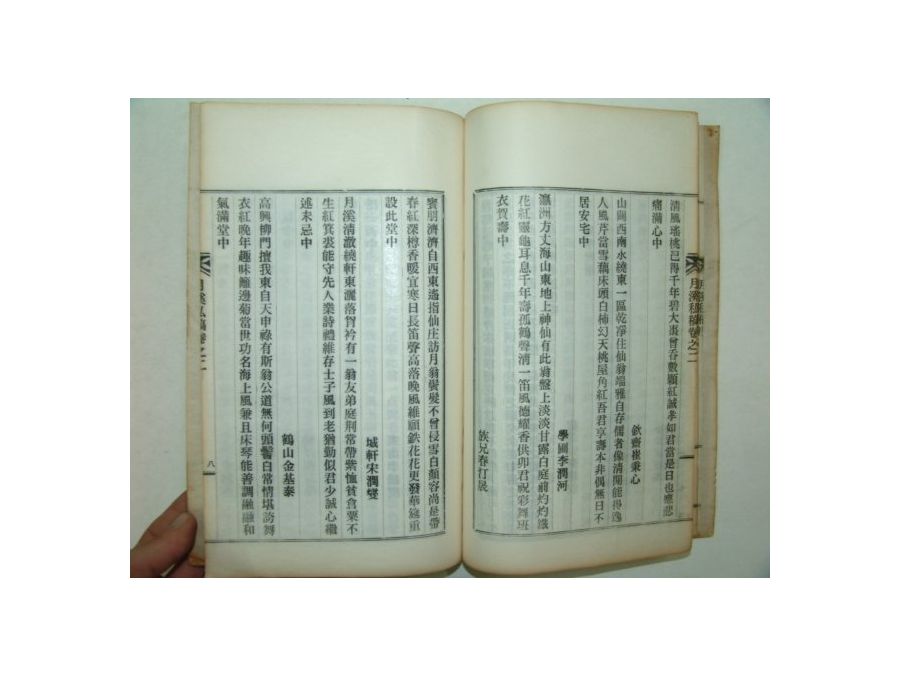 清風瑤桃已得千年碧大棗曾呑數顆紅誠孝如君當是日也應悲
痛滿心中
欽齋崔秉心
山關西南水繞東一區乾淨住仙翁端雅自存儒者像清閒能得逸
人風芹當雪藕床頭白柿幻天桃屋角紅吾君享壽本非偶無日不
居安宅中
學圃李潤河
瀛洲方丈海山東地上神仙有此翁盤上淡淡甘露白庭前灼灼
花紅靈龜耳息千年壽孤鶴聲清一笛風德耀香供卯君祝彩舞班
衣賀壽中
族兄春汀晟
賓朋濟濟自西東遙指仙庄訪月翁鬢髮不曾侵雪白顏容尙是帶
春紅深樽香暖宜寒日長笛聲高落晩風維願鉄花花更發華筵重
設此堂中
城軒宋潤燮
月溪清澈繞軒東灑落胷衿有一翁友弟庭荆常帶紫恤貧倉粟不
生紅箕裘能守先人業詩禮維存士子風到老猶勤似君少誠心繼
述未忘中
鶴山金基泰
高興柳門擅我東自天申祿有斯翁公道無何頭鬢白常情堪誇舞
衣紅晩年趣味籬邊菊當世功名海上風兼且床琴能善調融融和
氣滿堂中
月溪私稿卷之二
八